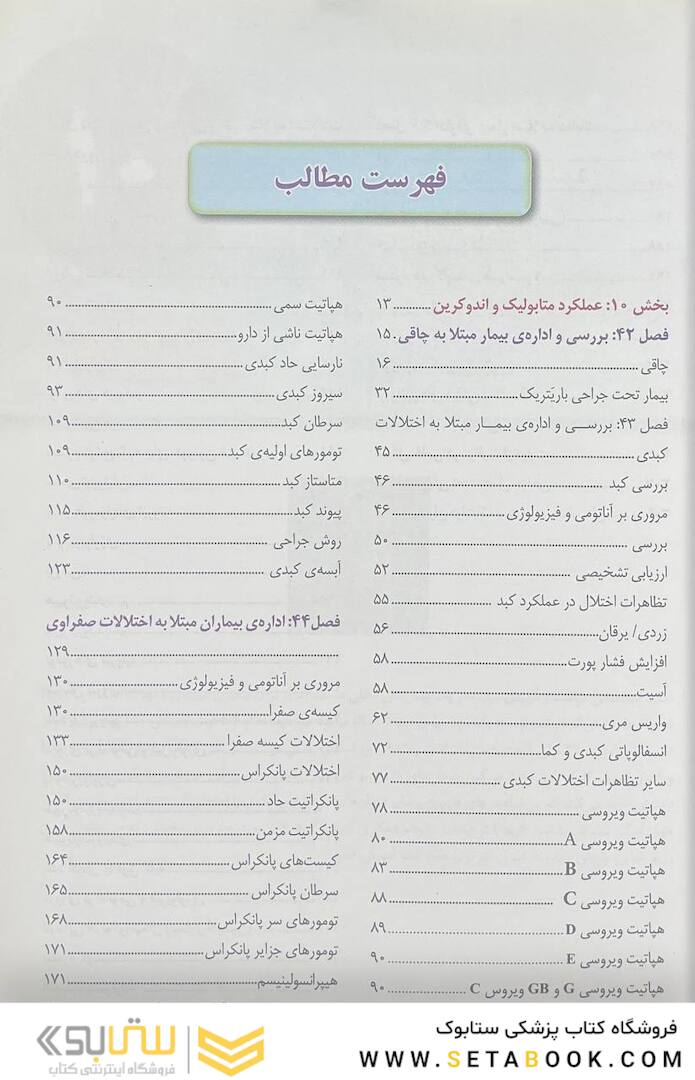 فهرست مطالب
بخش ۱۰: عملکرد متابولیک و اندوکرین............۱۳
فصل ۴۲: بررسی و اداره‌ی بیمار مبتلا به چاقی.۱۵
چاقی............۱۶
بیمار تحت جراحی باریَتریک............۳۲
فصل ۴۳: بررسی و اداره‌ی بیمار مبتلا به اختلالات
کبدی............۴۵
بررسی کبد ............۴۶
مروری بر آناتومی و فیزیولوژی............۴۶
بررسی ............۵۰
ارزیابی تشخیصی ............۵۲
تظاهرات اختلال در عملکرد کبد ............۵۵
زردی/ یرقان............۵۶
افزایش فشار پورت............۵۸
آسیت............۵۸
واریس مری............۶۲
انسفالوپاتی کبدی و کما............۷۲
سایر تظاهرات اختلالات کبدی ............۷۷
هپاتیت ویروسی ............۷۸
هپاتیت ویروسی A............۸۰
هپاتیت ویروسی B............۸۳
هپاتیت ویروسی C ............۸۸
هپاتیت ویروسی D............۸۹
هپاتیت ویروسی E............۹۰
هپاتیت ویروسی G و GB ویروس C ............۹۰
هپاتیت سمی ............۹۰
هپاتیت ناشی از دارو............۹۱
نارسایی حاد کبدی............۹۱
سیروز کبدی............۹۳
سرطان کبد............۱۰۹
تومورهای اولیه‌ی کبد............۱۰۹
متاستاز کبد............۱۱۰
پیوند کبد............۱۱۵
روش جراحی ............۱۱۶
آبسه‌ی کبدی ............۱۲۳
فصل۴۴: اداره‌ی بیماران مبتلا به اختلالات صفراوی
............۱۲۹
مروری بر آناتومی و فیزیولوژی............۱۳۰
کیسه‌ی صفرا............۱۳۰
اختلالات کیسه صفرا ............۱۳۳
اختلالات پانکراس............۱۵۰
پانکراتیت حاد............۱۵۰
پانکراتیت مزمن............۱۵۸
کیست‌های پانکراس............۱۶۴
سرطان پانکراس ............۱۶۵
تومورهای سر پانکراس............۱۶۸
تومورهای جزایر پانکراس............۱۷۱
هیپرانسولینیسم............۱۷۱
فروشگاه کتاب پزشکی ستابوک
WWW.SETABOOK.COM
ستابوک
فروشگاه اینترنتی کتاب